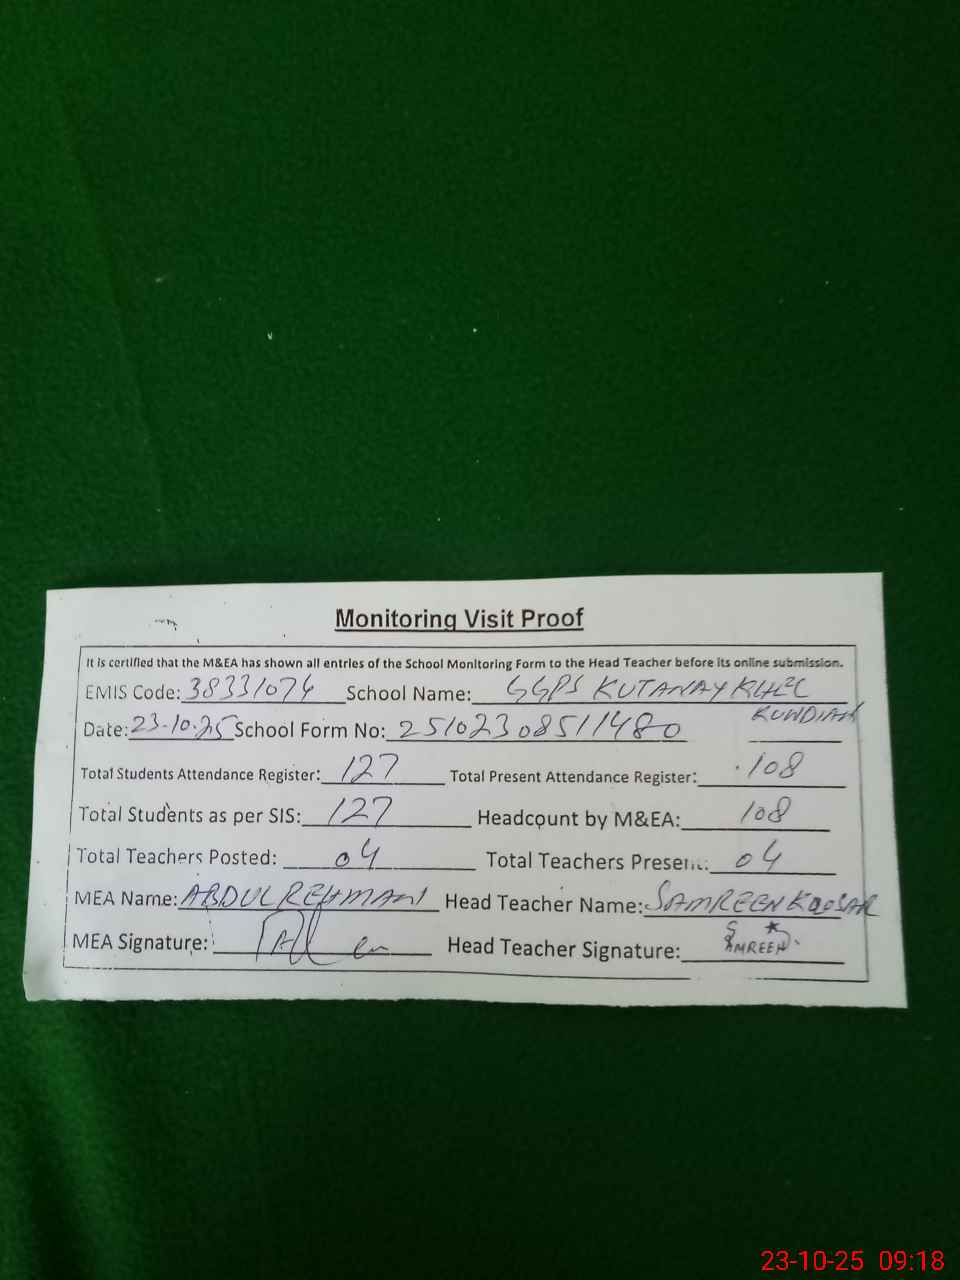 Monitoring Visit Proof
It is certified that the M&EA has shown all entries of the School Monitoring Form to the Head Teacher before its online submission.
EMIS Code: 38331074 School Name: GGPS KUTANAY KHEL
KUNDIAN
Date: 23-10-25 School Form No: 25102308511480
Total Students Attendance Register: 127 Total Present Attendance Register: 108
Total Students as per SIS: 127 Headcount by M&EA: 108
Total Teachers Posted: 04 Total Teachers Present: 04
MEA Name: ABDUL REHMAN Head Teacher Name: SAMREEN KOUSAR
MEA Signature: Head Teacher Signature: SAMREEN
23-10-25 09:18